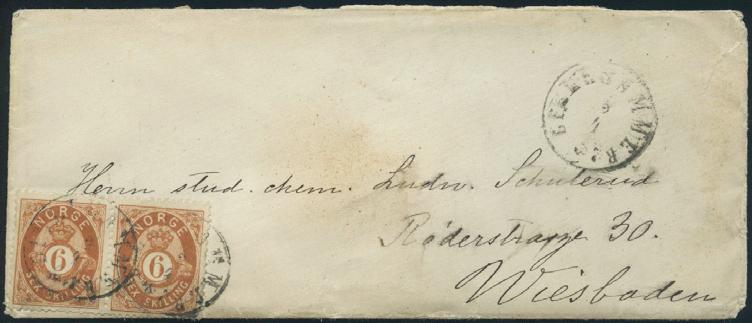 LILLEHAMMER
Herrn stud. chem. Ludw. Schulerud
Röderstrasse 30.
Wiesbaden
NORGE
6
SEX SKILLING
NORGE
6
SEX SKILLING